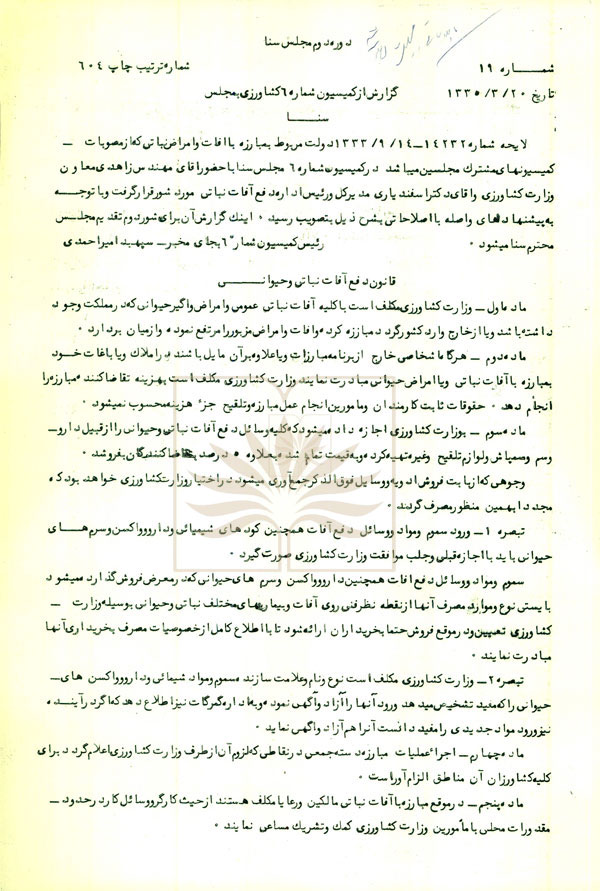 دوره دوم مجلس سنا
شمـــاره ۱۹
شماره ترتیب چاپ ۶۰۴
تاریخ ۱۳۳۵/۳/۲۰
گزارش از کمیسیون شماره ۶ کشاورزی به مجلس
سنـــا
لایحه شماره ۱۴۲۳۲ــ۱۳۳۳/۹/۱۴ دولت مربوط بمبارزه با آفات و امراض نباتی که از مصوبات ــ
کمیسیونهای مشترک مجلسین میباشد در کمیسیون شماره ۶ مجلس سنا با حضور آقای مهندس زاهدی معاون
وزارت کشاورزی و آقای دکتر اسفندیاری مدیر کل و رئیس اداره دفع آفات نباتی مورد شور قرار گرفت و با توجه
به پیشنهادهای واصله با اصلاحاتی بشرح ذیل بتصویب رسید ۰ اینک گزارش آن برای شور دوم تقدیم مجلس
محترم سنا میشود ۰ رئیس کمیسیون شماره ۶ بجای مخبر ــ سپهبد امیراحمدی
قانون دفع آفات نباتی و حیوانـــی
ماده اول ــ وزارت کشاورزی مکلف است با کلیه آفات نباتی عمومی و امراض واگیر حیوانی که در مملکت وجود
داشته باشد و یا از خارج وارد کشور گردد مبارزه کرده و آفات و امراض مزبور را مرتفع نموده و از میان بردارد ۰
ماده دوم ــ هرگاه اشخاصی خارج از برنامه مبارزات و یا علاوه بر آن مایل باشند در املاک و یا باغات خــود
بمبارزه با آفات نباتی و یا امراض حیوانی مبادرت نمایند وزارت کشاورزی مکلف است بهزینه تقاضا کننده مبارزه را
انجام دهد ۰ حقوقات ثابت کارمندان و مامورین انجام عمل مبارزه و تلقیح جزء هزینه محسوب نمیشود ۰
ماده سوم ــ بوزارت کشاورزی اجازه داده میشود که کلیه وسائل دفع آفات نباتی و حیوانی را از قبیل دارو ــ
و سم و سمپاش و لوازم تلقیح و غیره تهیه کرده و به قیمت تمام شده بعلاوه ۵ درصد بتقاضا کنندگان بفروشد ۰
وجوهی که از بابت فروش ادویه و وسایل فوق الذکر جمع آوری میشود در اختیار وزارت کشاورزی خواهد بود که
مجدداً بهمین منظور مصرف گردد ۰
تبصره ۱ــ ورود سموم و مواد و وسائل دفع آفات همچنین کودهای شیمیائی و دارو و واکسن و سرم هــای
حیوانی باید با اجازه قبلی و جلب موافقت وزارت کشاورزی صورت گیرد ۰
سموم و مواد و وسائل دفع آفات همچنین دارو و واکسن و سرم های حیوانی که در معرض فروش گذارده میشود
بایستی نوع و موارد مصرف آنها از نقطه نظر فنی روی آفات و بیماریهای مختلف نباتی و حیوانی بوسیله وزارت ــ
کشاورزی تعیین و در موقع فروش حتما بخریداران ارائه شود تا با اطلاع کامل از خصوصیات مصرف بخریداری آنها
مبادرت نمایند ۰
تبصره ۲ــ وزارت کشاورزی مکلف است نوع و نام و علامت سازنده سموم و مواد شیمیائی و دارو و واکسن های ــ
حیوانی را که مفید تشخیص میدهد ورود آنها را آزاد و آگهی نموده و به اداره گمرکات نیز اطلاع دهد که اگر در آینــده
نیز ورود مواد جدیدی را مفید دانست آنرا هم آزاد و آگهی نماید ۰
ماده چهارم ــ اجراء عملیات مبارزه دسته جمعی در نقاطی که لزوم آن از طرف وزارت کشاورزی اعلام گردد برای
کلیه کشاورزان آن مناطق الزام آور است ۰
ماده پنجم ــ در موقع مبارزه با آفات نباتی مالکین و رعایا مکلف هستند از حیث کارگر و وسائل کار در حدود ــ
مقدورات محلی با مأمورین وزارت کشاورزی کمک و تشریک مساعی نمایند ۰